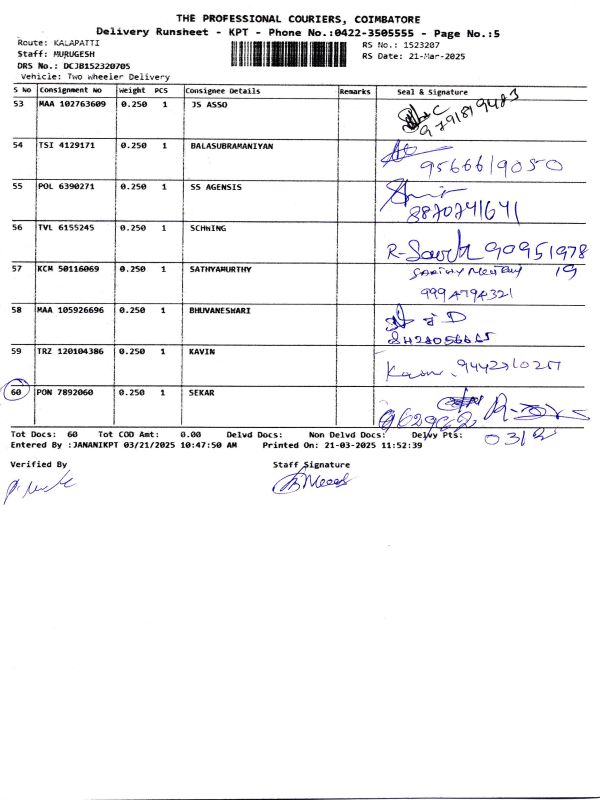 THE PROFESSIONAL COURIERS, COIMBATORE
Delivery Runsheet - KPT - Phone No.:0422-3505555 - Page No.:5
Route: KALAPATTI
Staff: MURUGESH
DRS No.: DCJB152320705
Vehicle: Two Wheeler Delivery
RS No.: 1523207
RS Date: 21-Mar-2025
S No Consignment No Weight PCS Consignee Details Remarks Seal & Signature
53 MAA 102763609 0.250 1 JS ASSO
9791879483
54 TSI 4129171 0.250 1 BALASUBRAMANIYAN
9566619050
55 POL 6390271 0.250 1 SS AGENSIS
8870741641
56 TVL 6155245 0.250 1 SCHWING
9095197819
57 KCM 50116069 0.250 1 SATHYAMURTHY
9994794321
58 MAA 105926696 0.250 1 BHUVANESWARI
59 TRZ 120104386 0.250 1 KAVIN
60 PON 7892060 0.250 1 SEKAR
Tot Docs: 60 Tot COD Amt: 0.00 Delvd Docs: Non Delvd Docs: Delvy Pts:
Entered By :JANANIKPT 03/21/2025 10:47:50 AM Printed On: 21-03-2025 11:52:39
Verified By Staff Signature